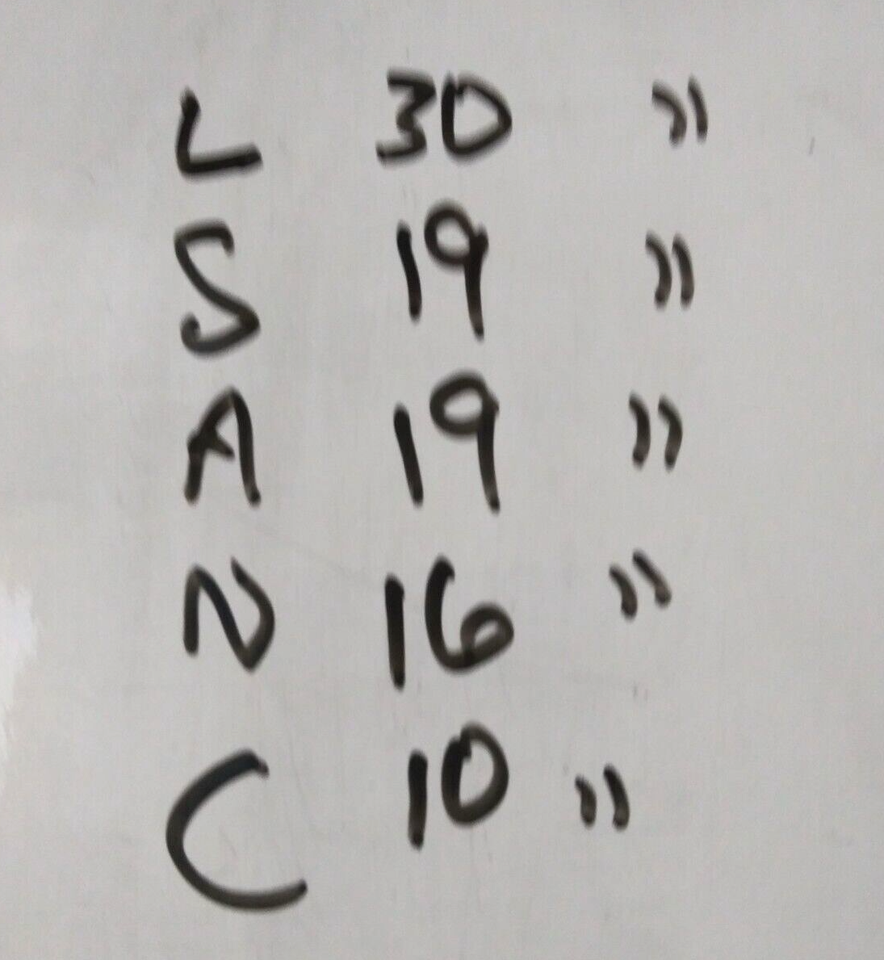 L 30 "
S 19 "
A 19 "
N 16 "
C 10 "